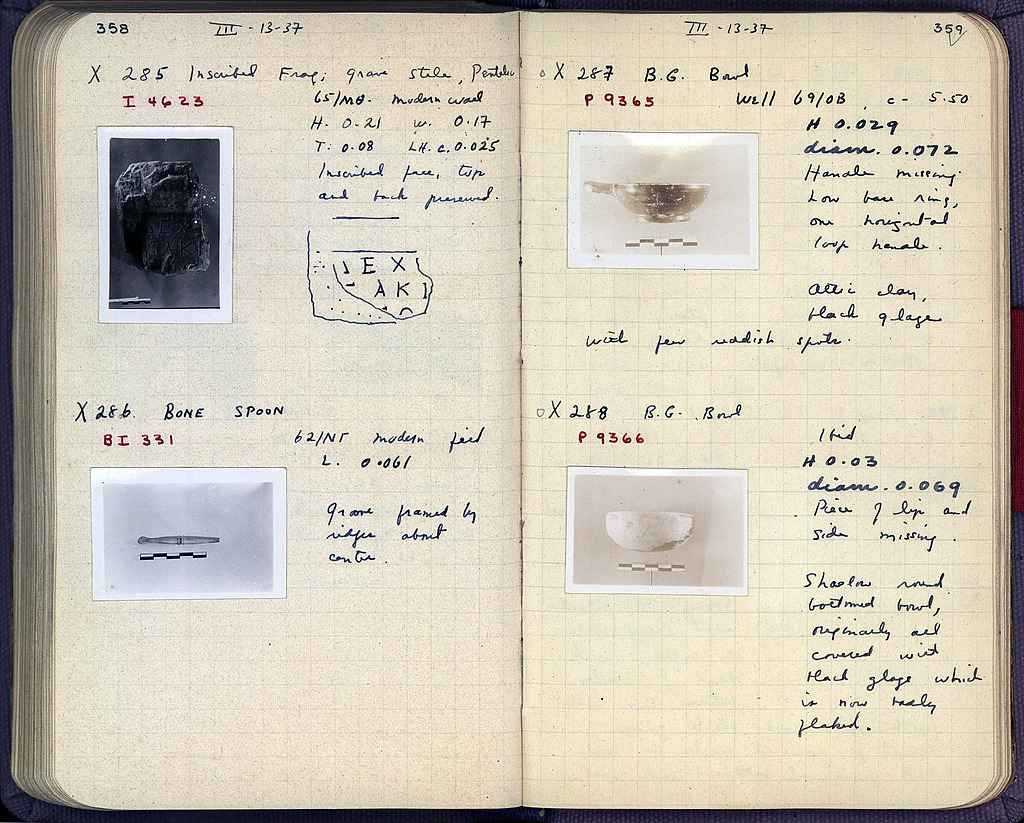 358
III - 13-37
X 285 Inscribed Frag; grave stele, Pentelic
I 4623
65/MΘ. modern wall
H. 0.21 W. 0.17
T. 0.08 LH. c. 0.025
Inscribed face, top
and back preserved.
Ε Χ
Α Κ
X 286. BONE SPOON
BI 331
62/ΝΤ modern
L. 0.061
Groove framed by
ridges about
centre.
III - 13-37
359
X 287 B.G. Bowl
P 9365
Well 69/ΟΒ, c - 5.50
H 0.029
diam. 0.072
Handle missing.
Low base ring,
one horizontal
loop handle.
Attic clay,
black glaze
with few reddish spots.
X 288 B.G. Bowl
P 9366
Ibid
H 0.03
diam. 0.069
Piece of lip and
side missing.
Shallow round
bottomed bowl,
originally all
covered with
black glaze which
is now badly
flaked.